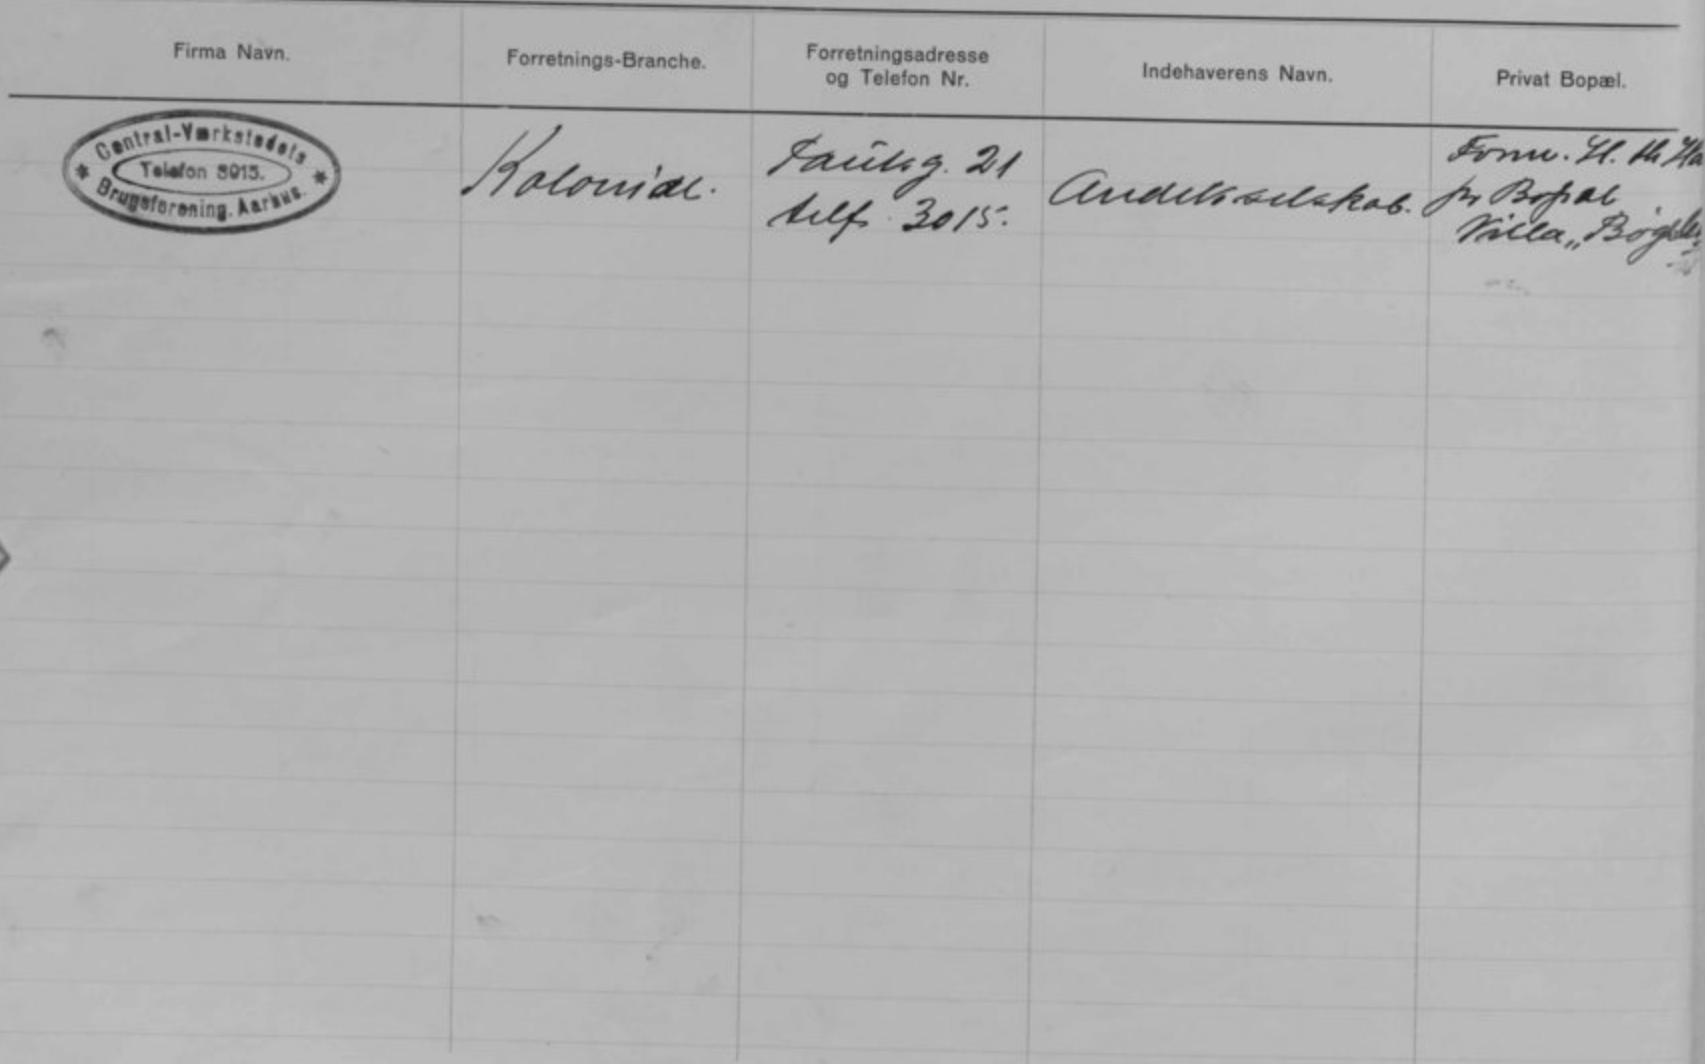 Firma Navn.
Forretnings-Branche.
Forretningsadresse
og Telefon Nr.
Indehaverens Navn.
Privat Bopæl.
Central-Værkstedets
Telefon 3015.
Brugsforening. Aarhus.
Kolonial.
21
telf. 3015.
Andelsselskab.
Form. H.
pr Bopæl
Villa „